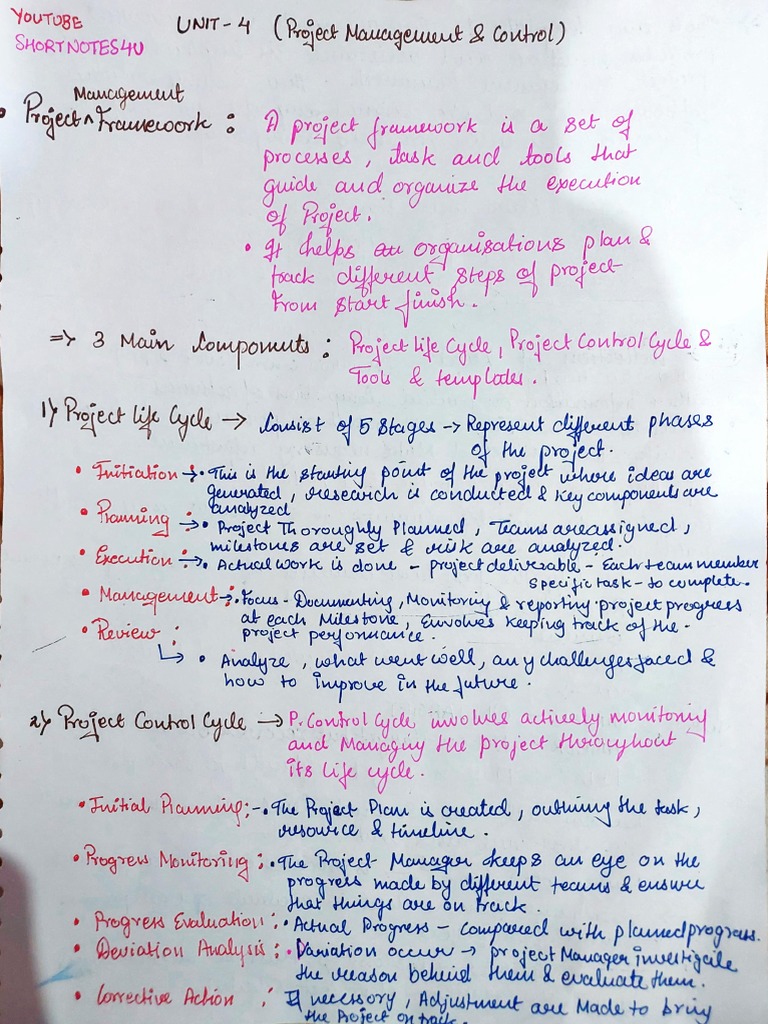 YOUTUBE
SHORTNOTES4U
UNIT-4 (Project Management & Control)
Management
• Project ^ Framework :
A project framework is a set of
processes, task and tools that
guide and organize the execution
of Project.
• It helps organisations plan &
track different steps of project
from start finish.
=> 3 Main Components : Project Life Cycle, Project Control Cycle &
Tools & templates.
1) Project Life Cycle → Consist of 5 Stages → Represent different phases
of the project.
• Initiation → • This is the starting point of the project where ideas are
generated, research is conducted & key components are
analyzed
• Planning → • Project Thoroughly Planned, Teams are assigned,
milestones are set & risk are analyzed.
• Execution → • Actual work is done - project deliverable - Each team member
specific task - to complete.
• Management → • Focus - Documenting, Monitoring & reporting project progress
at each Milestone, Envolves keeping track of the
project performance.
• Review :
• Analyze, what went well, any challenges faced &
how to improve in the future.
2) Project Control Cycle → P. Control Cycle involves actively monitoring
and Managing the project throughout
its life cycle.
• Initial Planning :- • The Project Plan is created, outlining the task,
resource & timeline.
• Progress Monitoring : • The Project Manager keeps an eye on the
progress made by different teams & ensure
that things are on track.
• Progress Evaluation : • Actual Progress - compared with planned progress.
• Deviation Analysis : • Variation occur → project Manager investigate
the reason behind them & evaluate them.
• Corrective Action : If necessary, Adjustment are Made to bring
the Project on track.